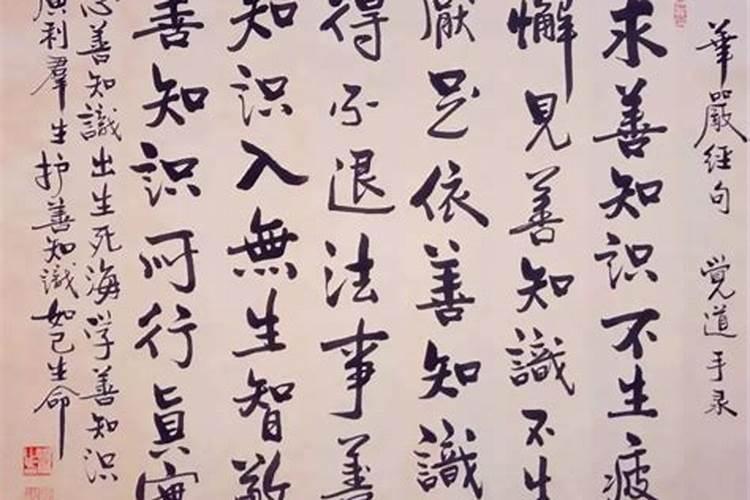 華嚴經句 覚道手录
求善知识不生疲
懈見善知識不生
厭足依善知識
得不退法事善
知识入無生智敬
善知识所行真实
心善知識出生死海学善知识
廣利羣生护善知識如己生命